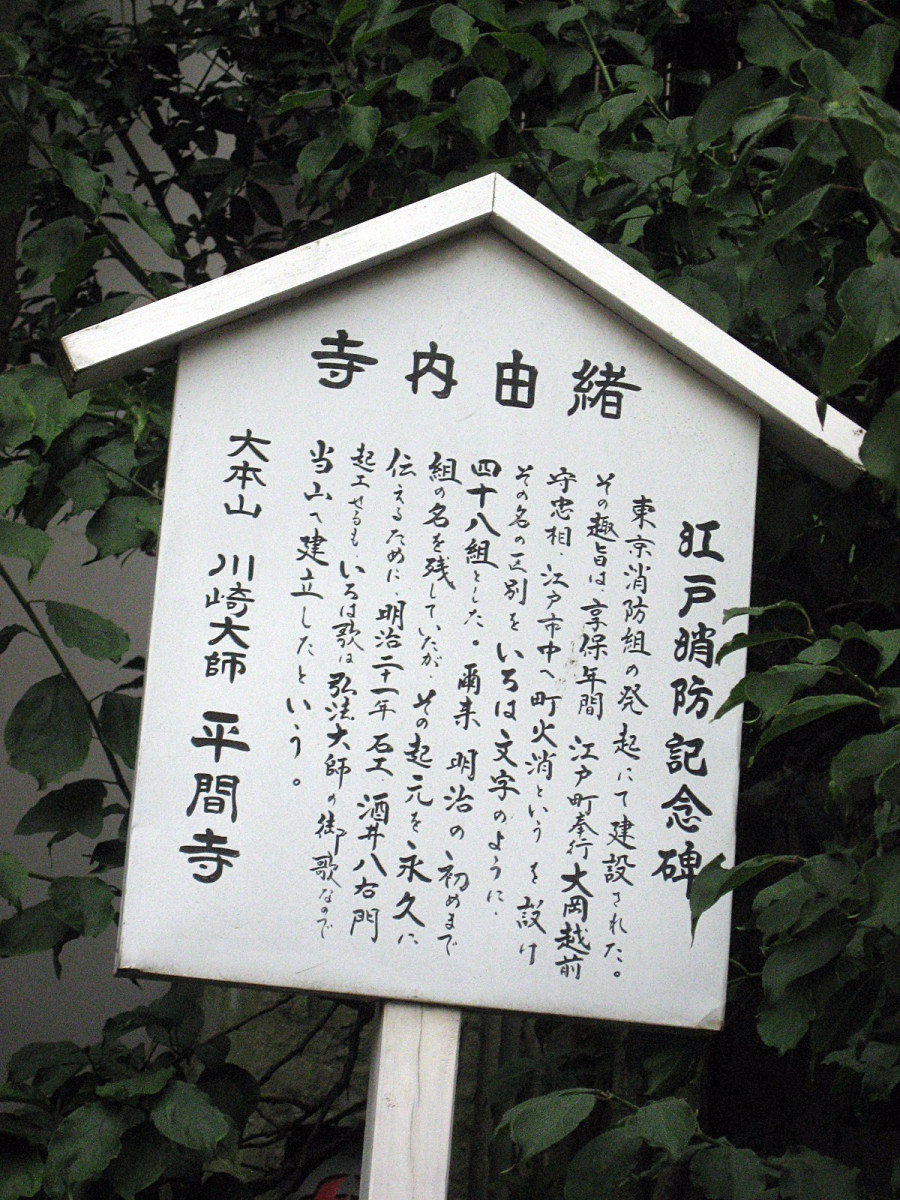 寺内由緒
江戸消防記念碑
東京消防組の発起にて建設された。
その趣旨は、享保年間 江戸町奉行 大岡越前
守忠相、江戸市中へ町火消というを設け
その名の区別をいろは文字のように、
四十八組とした。爾来 明治の初めまで
組の名を残していたが、その起元を永久に
伝えるために、明治二十一年 石工 酒井八右門
起工せるも、いろは歌は弘法大師の御歌なので
当山へ建立したという。
大本山 川崎大師 平間寺